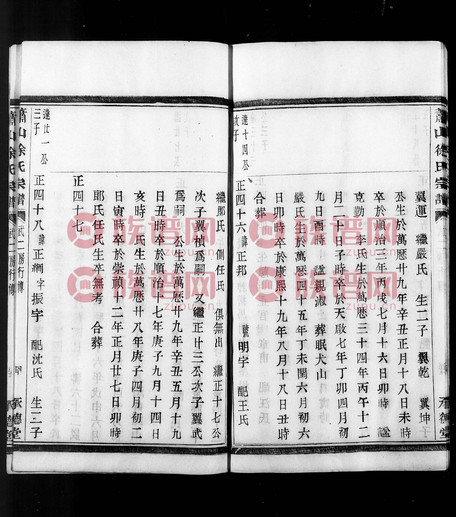 蕭山徐氏宗譜
承德堂
翼運 繼嚴氏 生二子 翼乾 翼坤
公生於萬曆廿九年辛丑正月十八日未時
卒於順治三年丙戌七月十六日卯時 諡
克勤 李氏生於萬曆三十四年丙午十二
月二十日子時卒於天啟七年丁卯四月初
九日酉時 諡親淑 葬眠犬山
嚴氏生於萬曆四十五年丁未閏六月初六
日卯時卒於康熙十九年八月十八日丑時
合葬
達十四公
次子
正四十六 諱正邦 號明宇 配王氏
繼鄭氏 側任氏 俱無出 繼正十七公
次子翼楨為嗣 又繼正廿三次子翼武
為嗣 公生於萬曆廿九年辛丑五月十九
日丑時卒於順治十七年庚子九月十四日
亥時 氏生於萬曆廿八年庚子四月初二
日寅時卒於崇禎十二年正月廿七日卯時
鄭氏任氏生卒無考 合葬
正四十七
達廿一公
三子
正四十八 諱正綱 字振宇 配沈氏 生三子
蕭山徐氏宗譜
承德堂